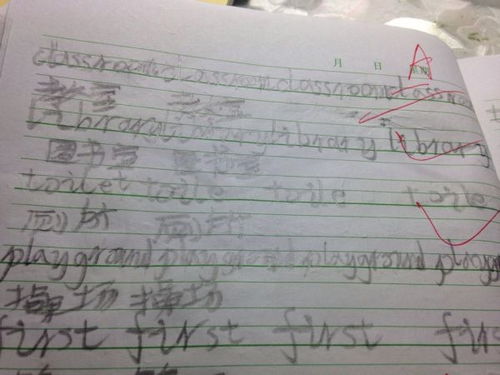 月 日 A
classroom classroom classroom classroo
教室 教室
library library library library
图书室 图书室
toilet toile toile toile
厕所 厕所
playground playground playground playg
操场 操场
first first first firs